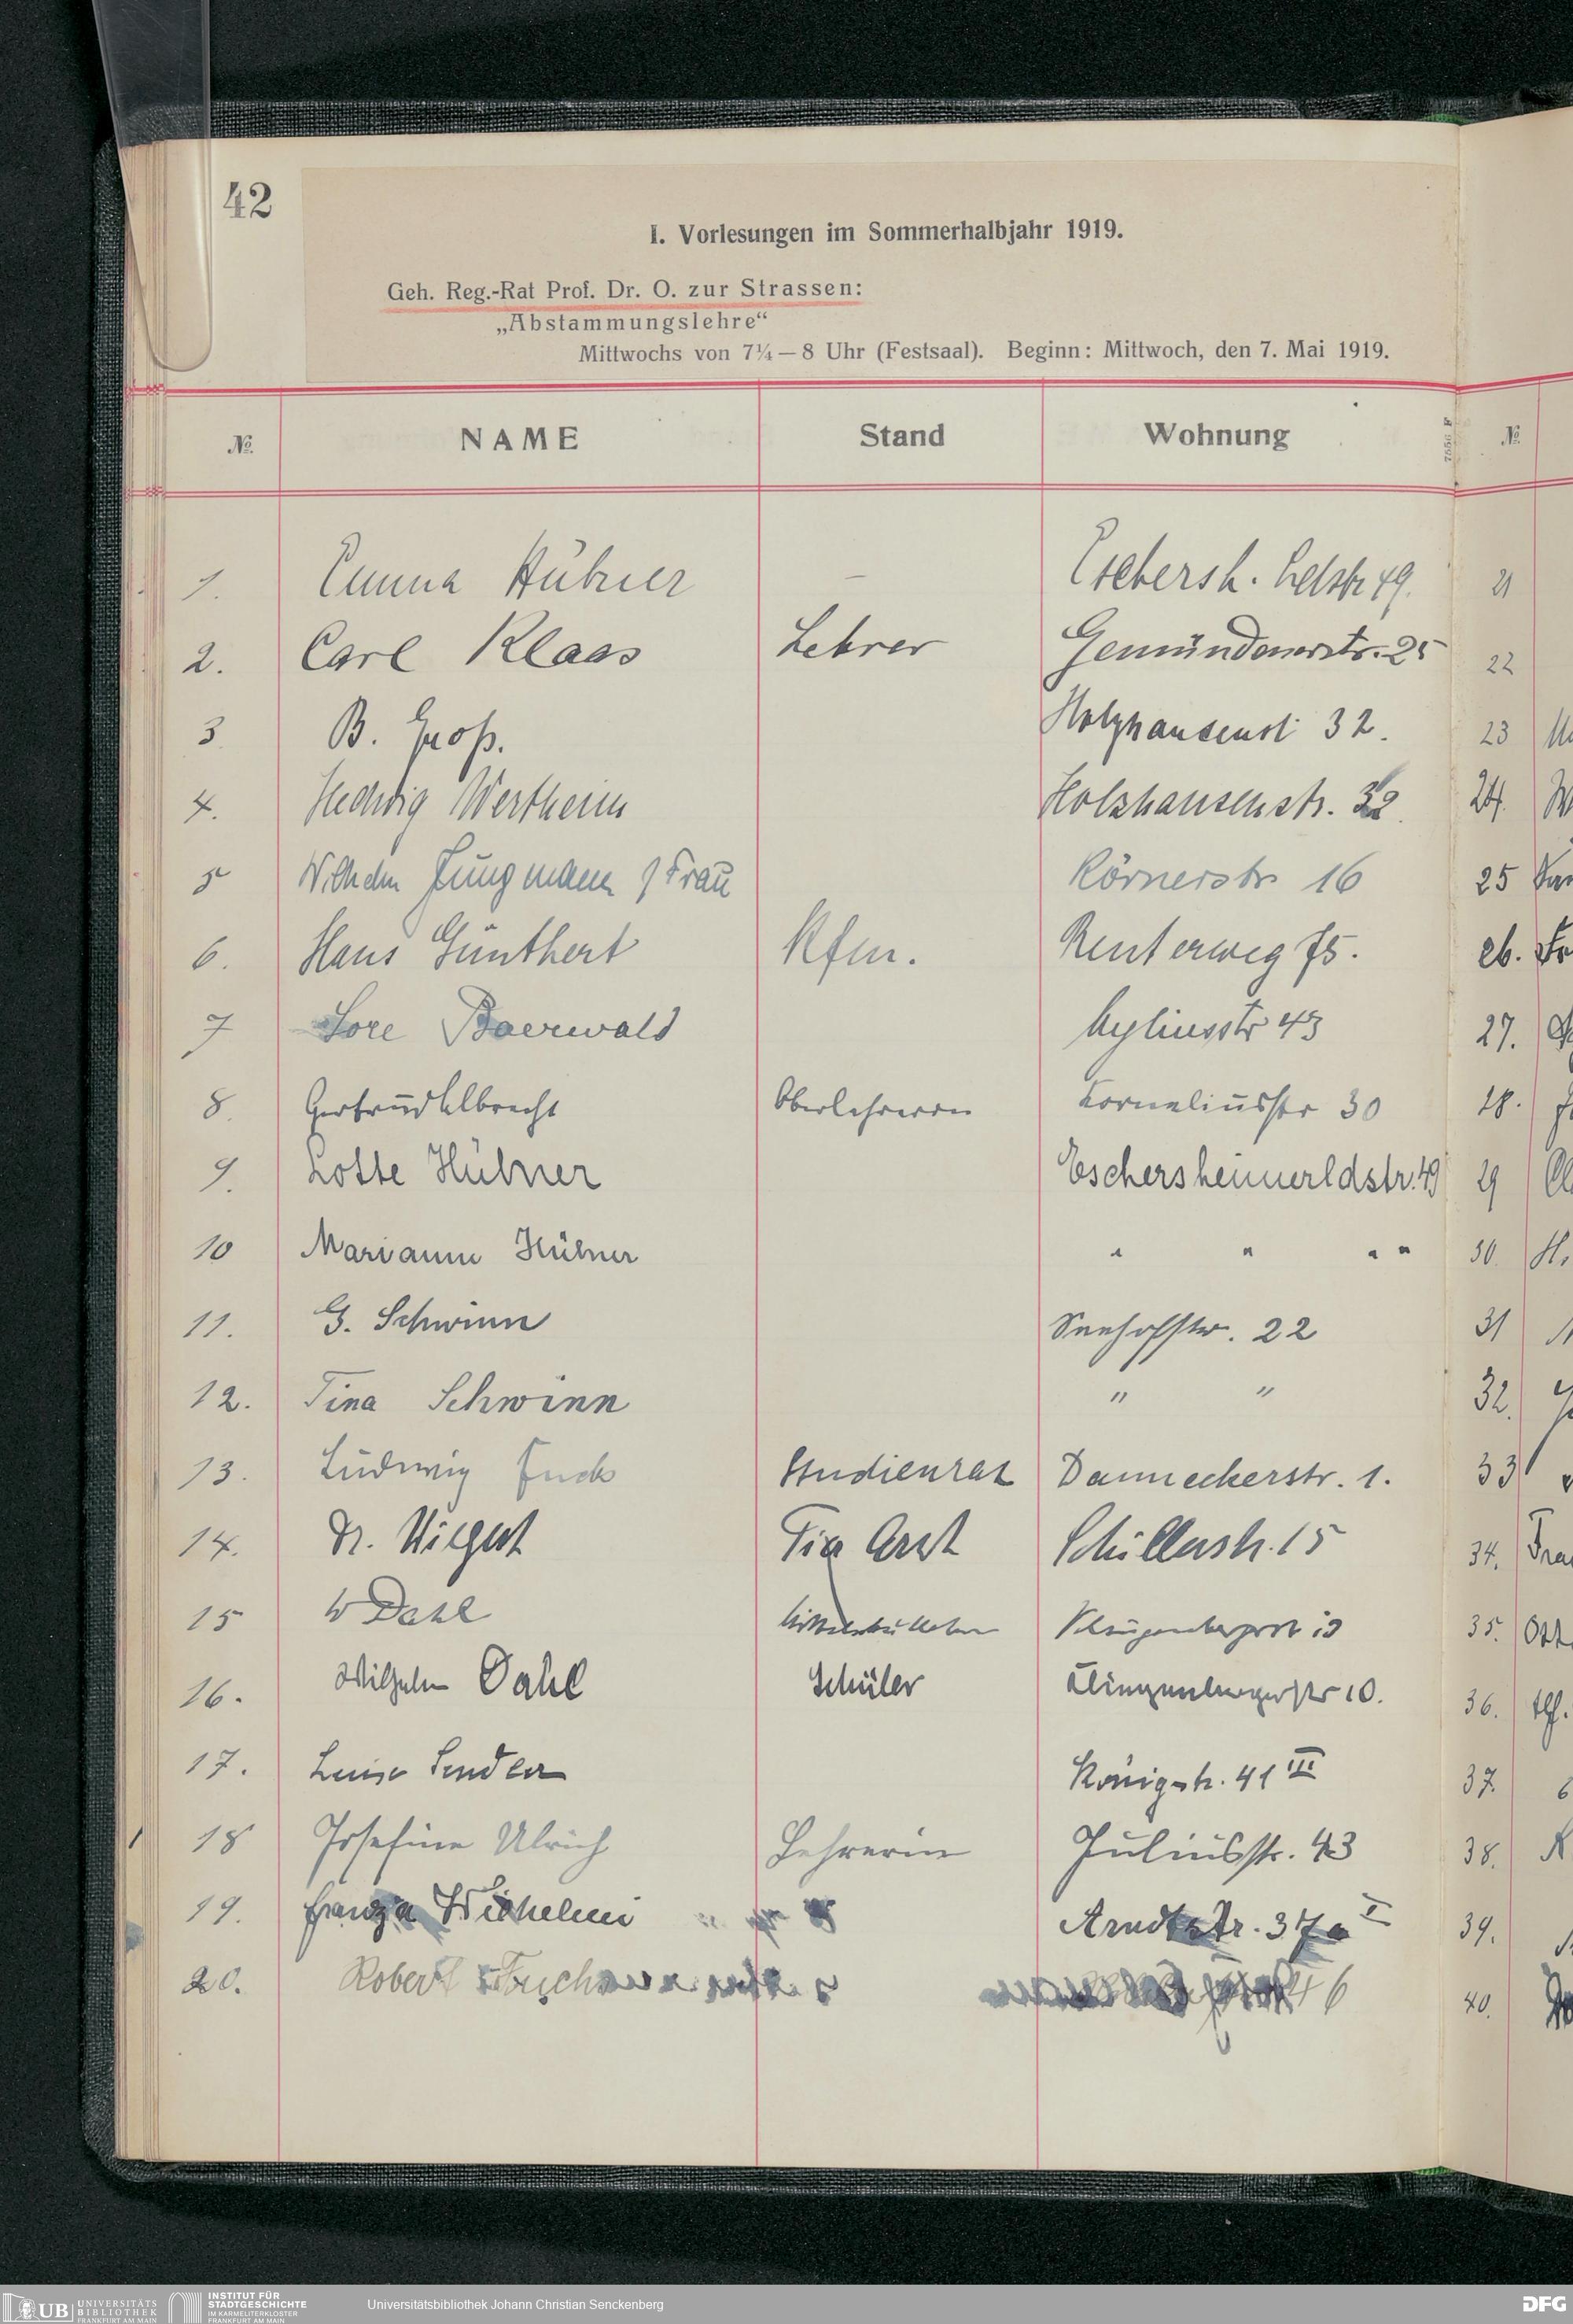 42
I. Vorlesungen im Sommerhalbjahr 1919.
Geh. Reg.-Rat Prof. Dr. O. zur Strassen:
„Abstammungslehre“
Mittwochs von 7¼—8 Uhr (Festsaal). Beginn: Mittwoch, den 7. Mai 1919.
№ NAME Stand Wohnung №
1. Emma Hübner — 49. 21
2. Carl Klaas Lehrer Gemündenerstr. 25 22
3 B. Groß. Holzhausenst 32. 23
4. Hedwig Wertheim Holzhausenstr. 32. 24.
5 Wilhelm Jungmann Frau Körnerstr 16 25
6. Hans Günthert Kfm. Reuterweg 75. 26.
7 Lore Baerwald Myliusstr 43 27.
8. Gertrud Albrecht Oberlehrerin Korneliusstr 30 28.
9. Lotte Hübner Eschersheimerldstr. 49 29
10 Marianne Hübner " " " " 30.
11. G. Schwinn Seehofstr. 22 31
12. Tina Schwinn " " 32.
13. Ludwig Fuchs Studienrat Danneckerstr. 1. 33
14. Dr. Arzt Schillerstr. 15 34.
15 W Dahl 10 35.
16. Wilhelm Dahl Schüler Klingenbergerstr 10. 36.
17. Luise Sendler Königstr. 41 III 37.
18 Josefine Ulrich Lehrerin Juliusstr. 43 38.
19. Wilhelmi Arndtstr. 37a I 39.
20. Robert 46 40.
UB UNIVERSITÄTS BIBLIOTHEK FRANKFURT AM MAIN
INSTITUT FÜR STADTGESCHICHTE IM KARMELITERKLOSTER FRANKFURT AM MAIN
Universitätsbibliothek Johann Christian Senckenberg
DFG